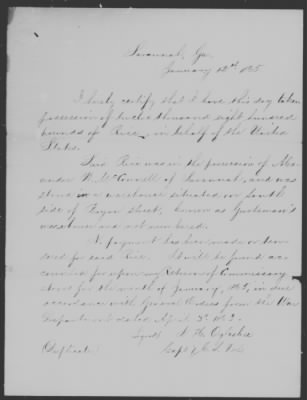 Savannah, Ga.
January 12th 1865
I hereby certify that I have this day taken
possession of twelve thousand eight hundred
pounds of Rice, in behalf of the United
States.
Said Rice was in the possession of Alex-
ander N. McConnell of Savannah, and was
stored in a warehouse situated on South
side of Bryan Street, known as
warehouse and not numbered.
No payment has been made or ten-
dered for said Rice. It will be found ac-
counted for upon my Return of Commissary
stores for the month of January, 1865, in due
accordance with General Orders from the War
Department dated April 3d
Signed
(Duplicate) Capt & C.S. Vols